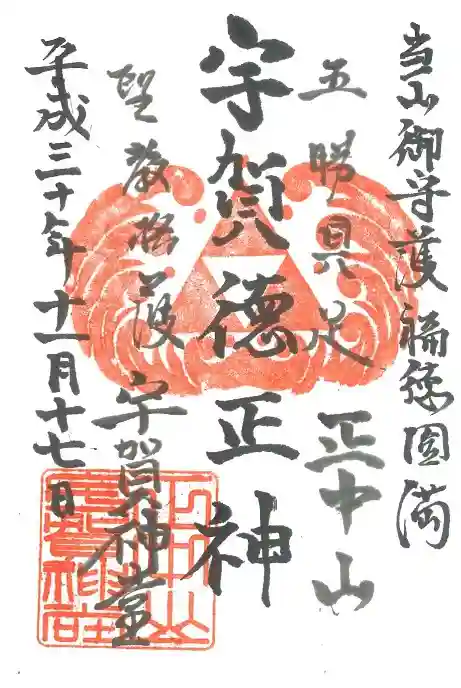 当山御守護福徳圓満
五勝具足 正中山
宇賀徳正神
聖教格護 宇賀神堂
平成三十年十一月十七日